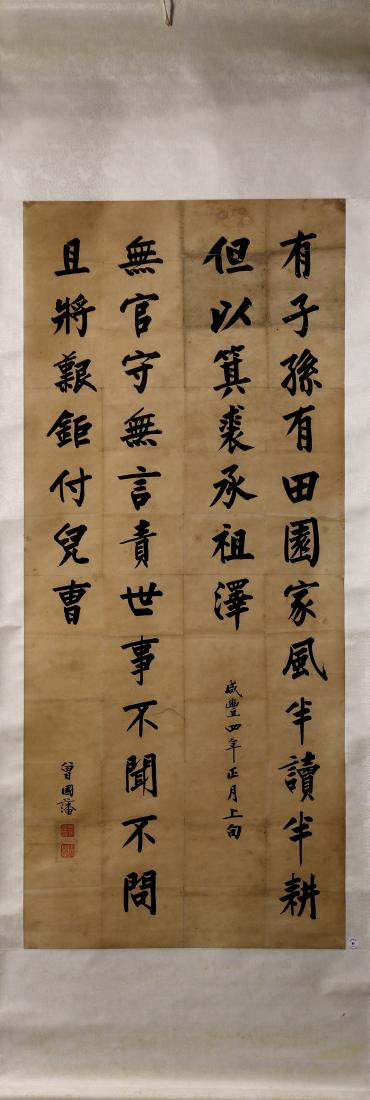 有子孫有田園家風半讀半耕
但以箕裘承祖澤
咸豐四年正月上旬
無官守無言責世事不聞不問
且將艱鉅付兒曹
曾國藩